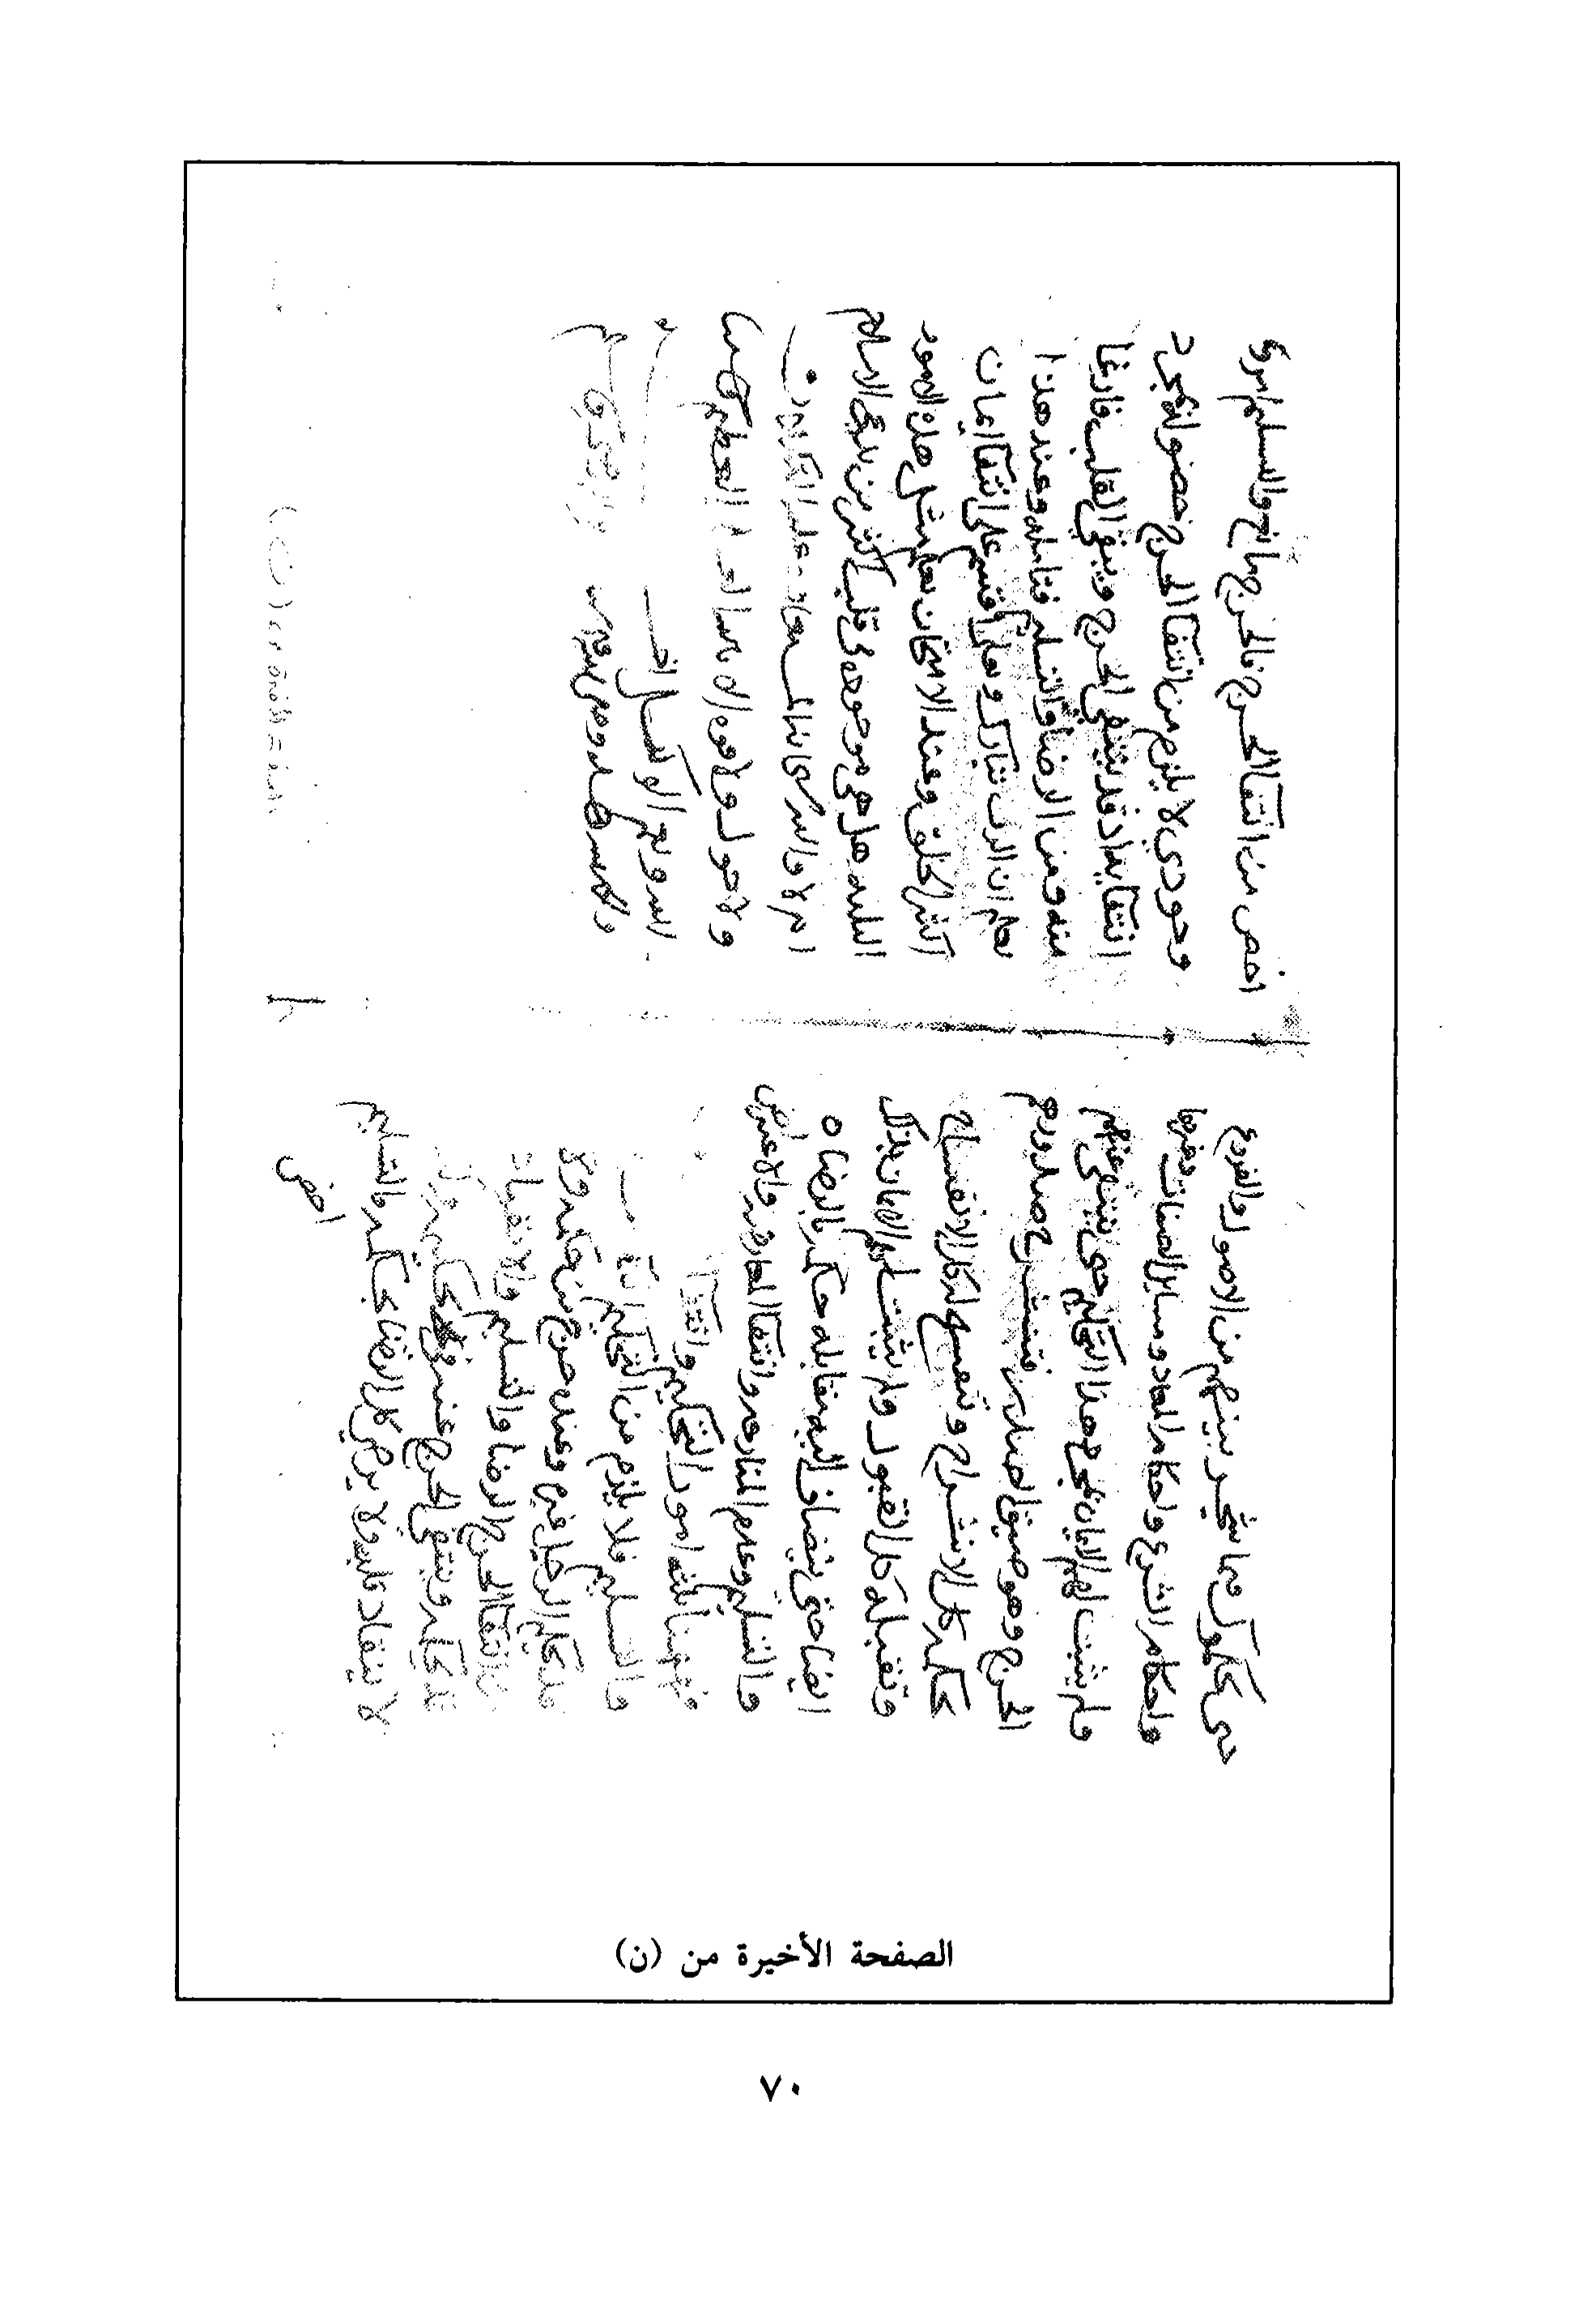 حتى يحكموك فيما شجر بينهم من الاصول والفروع
واحكام الشرع واحكام المعاد وساير الصفات وغيرها
ولم يثبت لهم الايمان بمجرد هذا التحكيم حتى ينتفي عنهم
الحرج وهو ضيق الصدر فتنشرح صدورهم
لحكمه كل الانشراح وتنفسح له كل الانفساح
وتقبله كل القبول ولم يثبت لهم الايمان بذلك
ايضا حتى ينضاف اليه مقابلة حكمه بالرضاه
والتسليم وعدم المنازعه وانتفا المعارضه والاعتراض
فهنا ثلثة امور التحكيم وانتفا
والتسليم فلا يلزم من التحكيم
قد يحكم الرجل غيره وعنده حرج من حكمه ولا
انتفا الحرج الرضا والتسليم والانقياد
قد يحكمه وينتفي الحرج عنه في تحكيمه
لا ينقاد قلبه ولا يرضى كل الرضا بحكمه والتسليم
اخص
اخص من انتفا الحرج فالحرج مانع والتسليم امر
وجودي لا يلزم من انتفا الحرج حصوله بمجرد
انتفايه اذ قد ينتفي الحرج ويبقى القلب فارغا
منه ومن الرضا والتسليم فتامله وعند هذا
يعلم ان الرب تبارك وتعالى اقسم على انتفا ايمان
اكثر الخلق وعند الامتحان تعلم مثل هذه الامور
الثلاثه هل هي موجوده في قلب اكثر من يدعي الاسلام
ام لا والله
ولا حول ولا قوه الا بالله العلي العظيم حسبنا
الله ونعم الوكيل
الصفحة الأخيرة من (ن)
٧٠